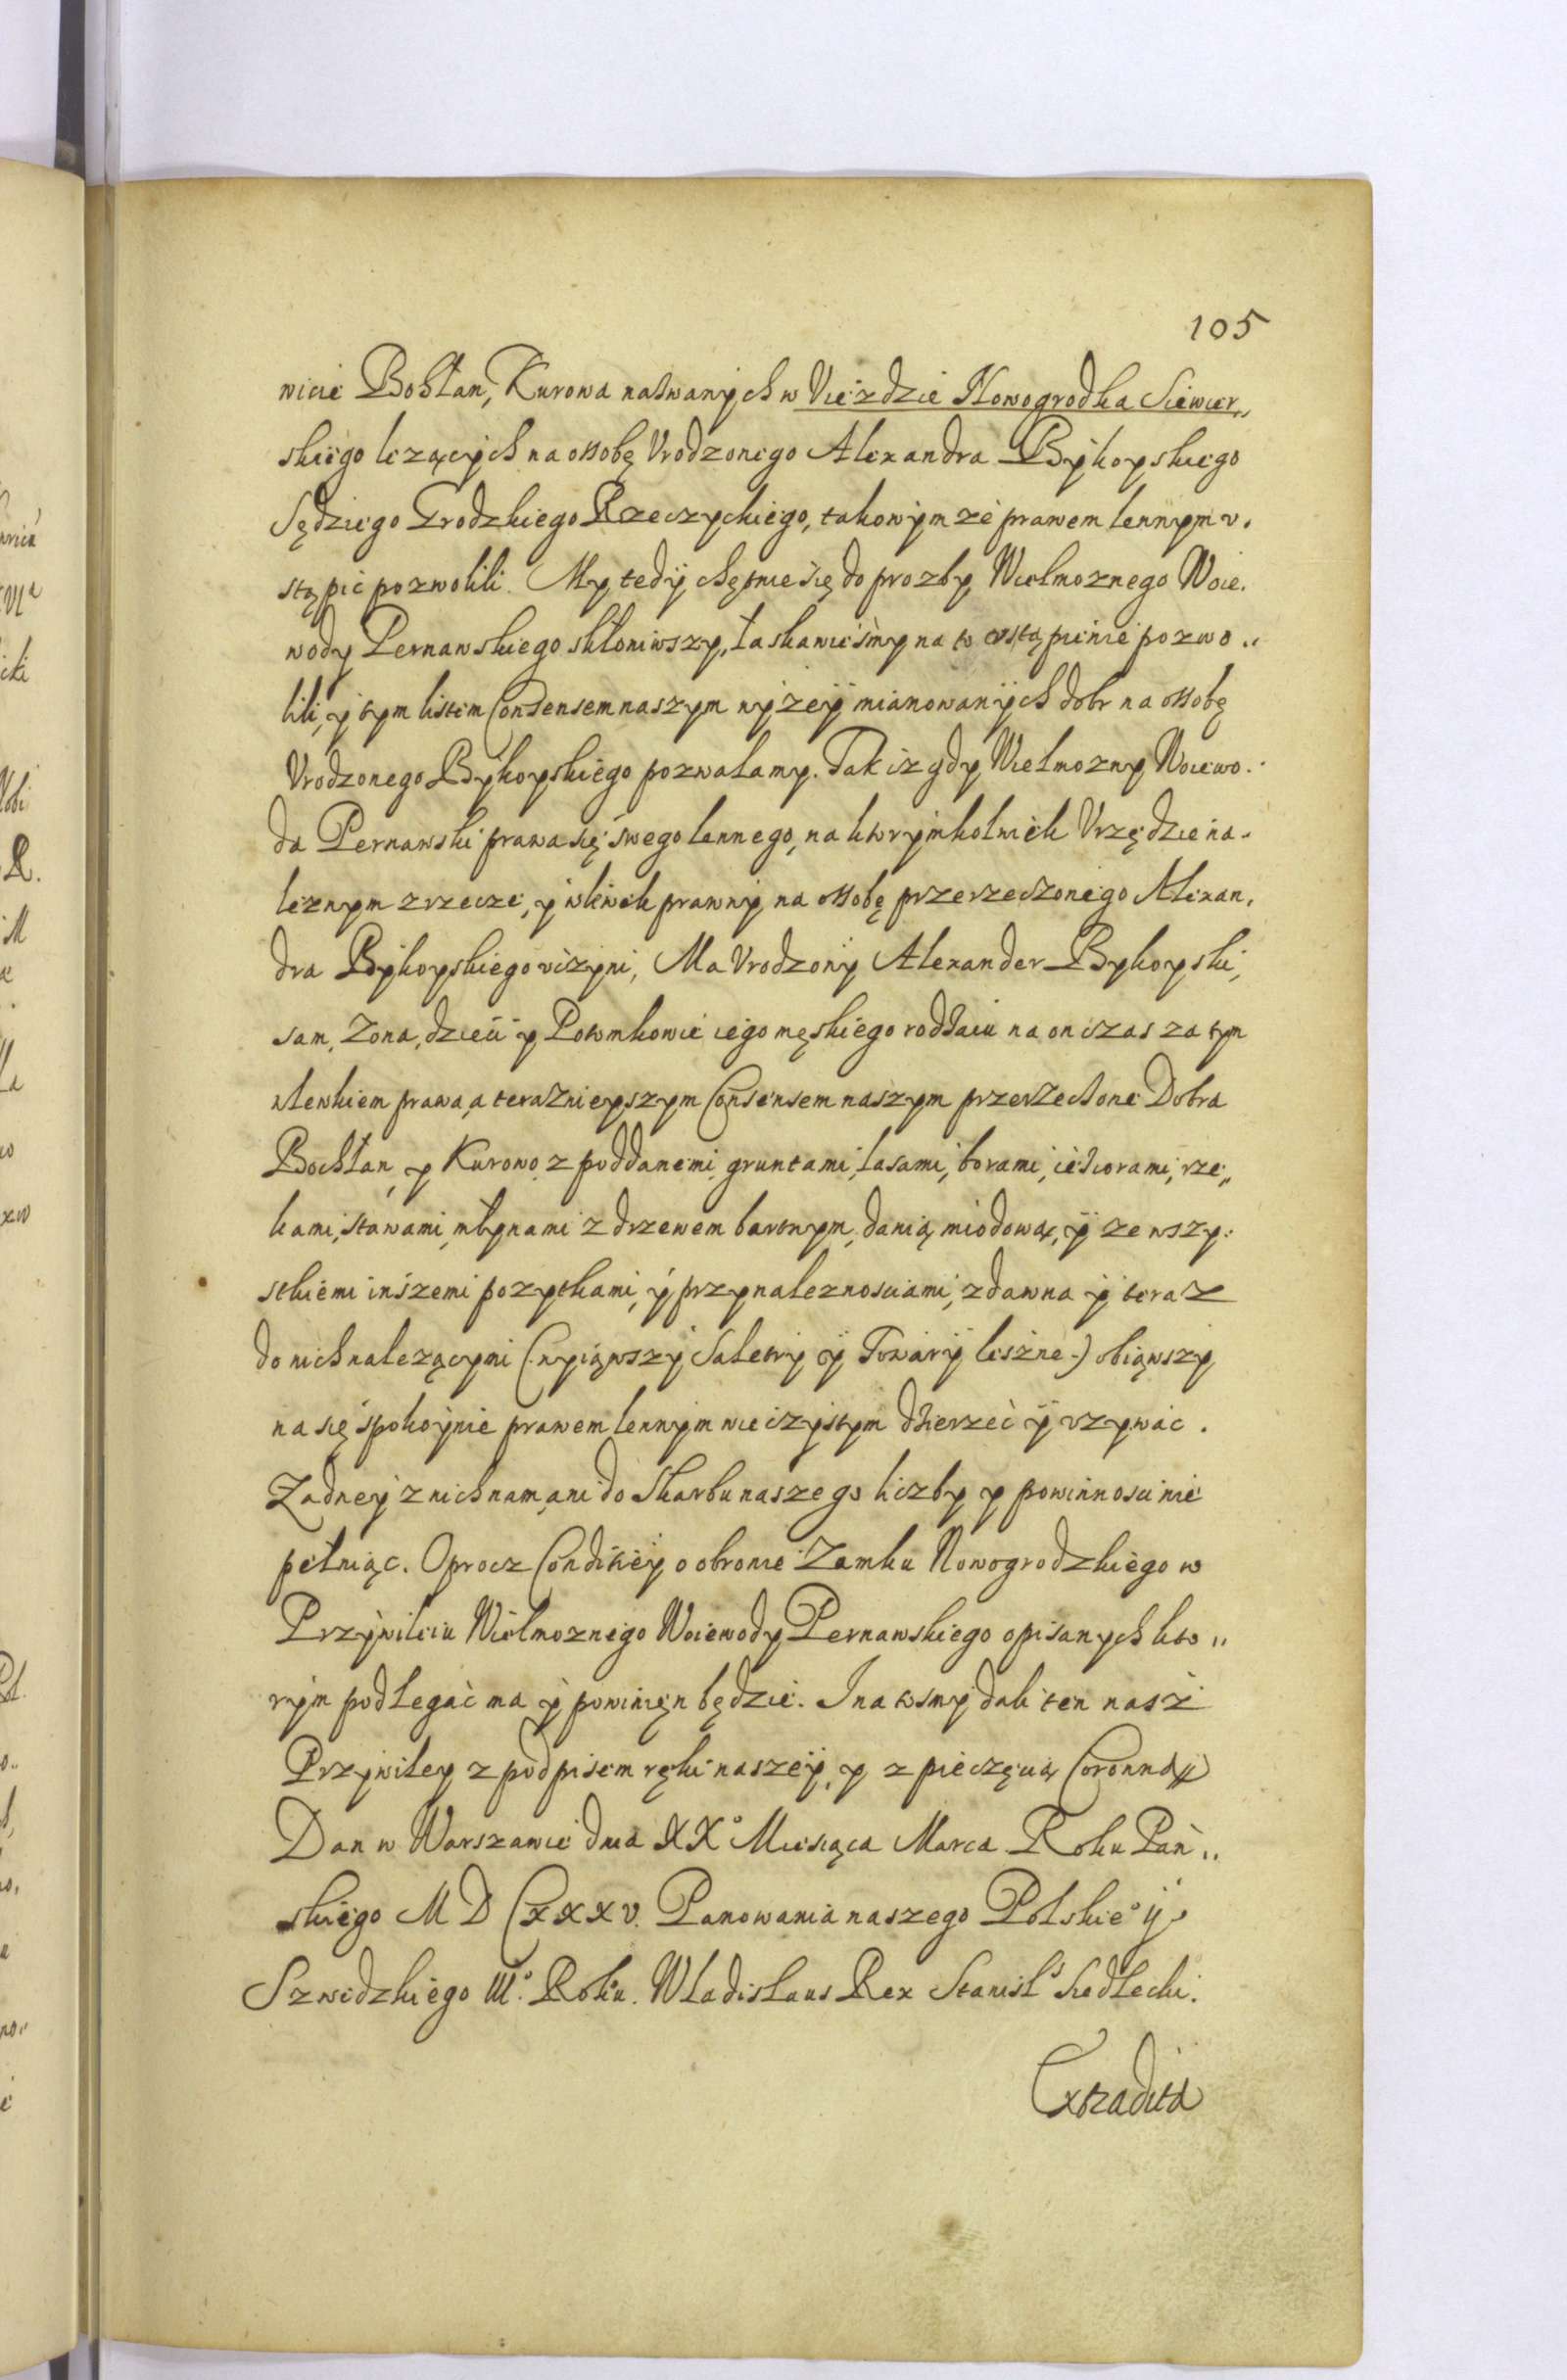 105
wicie Bohłan, Kurowa nazwanych w Vieździe Nowogrodka Siewier„
skiego leżących na ossobę Vrodzonego Alexandra Bykoyskiego
Sędziego Grodzkiego Rzeczyckiego, takowym ze prawem lennym v.
stąpic pozwolili. My tedy chętnie się do prozby Wielmoznego Woie.
wody Pernawskiego skłoniwszy, łaskawieśmy na to vstąpienie pozwo„
lili, y tym listem Consensem naszym wyżey mianowanych dobr na ossobę
Vrodzonego Bykoyskiego pozwalamy. Tak iz gdy Wielmozny Woiewo.
da Pernawski prawa się swego lennego, na ktorymkolwiek Vrzędzie na.
leznym zrzecze, y wlewek prawny na ossobę przerzeczonego Alexan.
dra Bykoyskiego vczyni, Ma Vrodzony Alexander Bykoyski,
sam, Zona, dzieci y Potomkowie iego męskiego rodzaiu na on czas za tym
wlewkiem prawa, a teraznieyszym Consensem naszym przerzeczone Dobra
Bochłan, y Kurowo z poddanemi, gruntami, lasami, borami, ieziorami, rze„
kami, stawami, młynami z drzewem bartnym, danią miodową, y ze wszy:
stkiemi inszemi pozytkami, y przynaleznosciami, zdawna y teraz
do nich nalezącymi (wyiąwszy Saletry y Towary lesne.) obiąwszy
na się spokoynie prawem lennym wieczystym dzierzeć y vzywac.
Zadney z nich nam, ani do Skarbu naszego liczby y powinnosci nie
pełniąc. Oprocz Conditiey o obronie Zamku Nowogrodzkiego w
Przywileiu Wielmoznego Woiewody Pernawskiego opisanych kto„
rym podlegać ma y powinien będzie. I na tosmy dali ten nasz
Przywiley z podpisem ręki naszey, y z pieczęcią Coronną
Dan w Warszawie dnia XX° Miesiąca Marca Roku Pań„
skiego MDCXXXV. Panowania naszego Polskie° y
Szwedzkiego III°. Roku. Wladislaus Rex Stanisłs Siedlecki.
Extradita